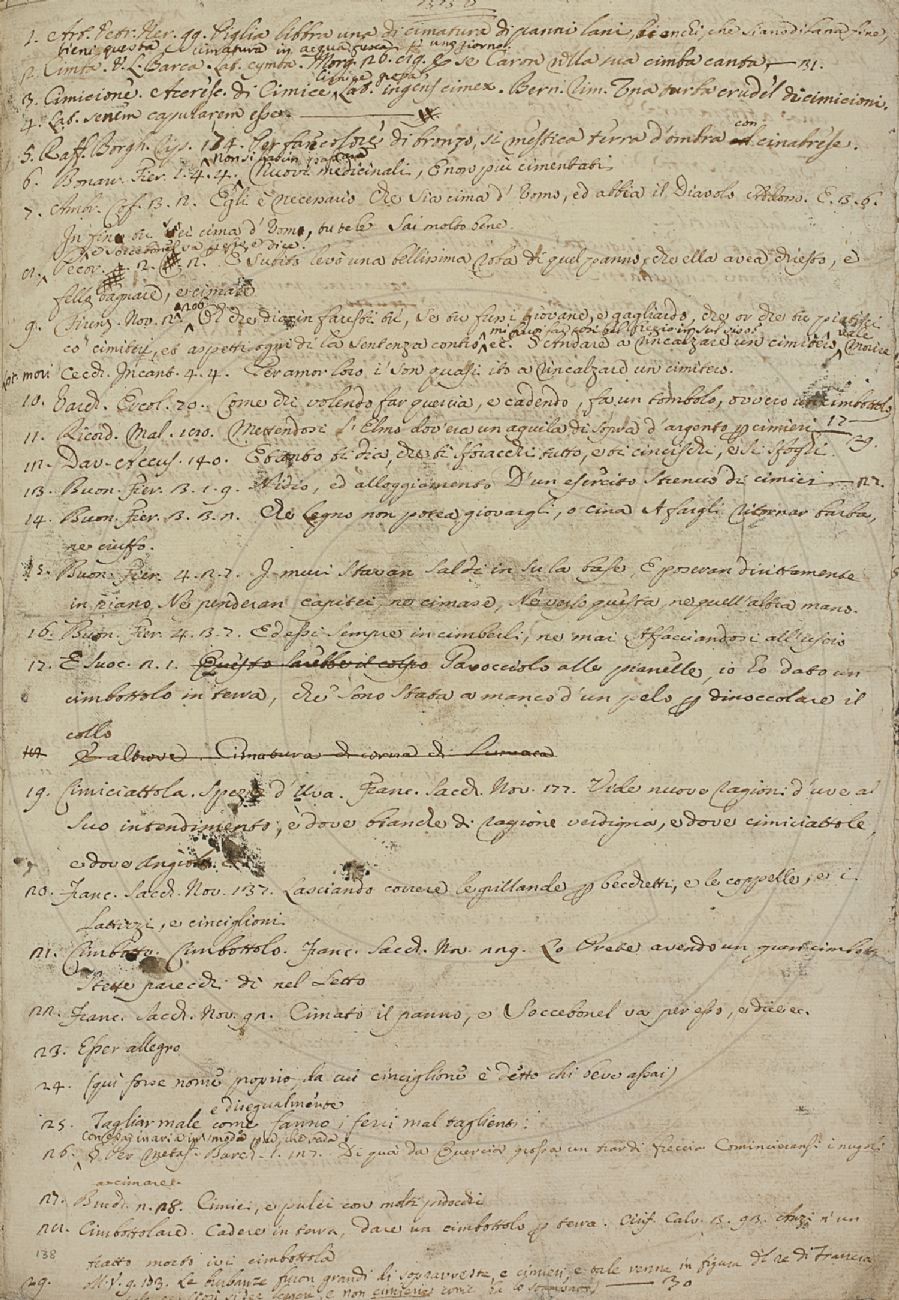 1. Art. Vetr. Ner. 99. Piglia libbra una di cimatura di panni lani, bianchi, che siano di lana fine,
tieni questa cimatura in acqua fresca un giorno.
2. Cimba. V. L. Barca. Lat. cymba. Morg. 26. E se Caron nella sua cimba canta — 21.
Cimice grossa
3. Cimicione. Accresc. di Cimice, Lat. ingens cimex. Bern. rim. Una turba crudel di cimicioni.
4. Lat. senem capularem esse.
5. Raff. Borgh. Rip. 184. Per far color di bronzo, si mestica terra d'ombra con cinabrese.
6. Buonar. Fier. 1. 4. 4. Nuovi medicinali, E non più cimentati
7. Ambr. Cof. 3. 2. Egli è necessario Che sia cima d'Uomo, ed abbia il Diavolo Addosso. E. 3. 6.
In fine tu sei cima d'Uomo, tu te le sai molto bene
e Soccebonel va per esse e dice.
8. Pecor. 12. 2. E subito levò una bellissima roba di quel panno, che ella avea chiesto, e
fella bagnare, e cimare
9. Franc. Nov. Di che diavin faresti tu, se tu fussi giovane, e gagliardo, che or che tu
co' cimiteri, et aspetti ogni dì la sentenza contro ec. S'andare a rincalzare un cimitero, vale morire
Cecch. Incant. 4. 4. Per amor loro, i' son quasi ito a rincalzare un cimitero.
10. Varch. Ercol. 79. Come chi volendo far quercia, e cadendo, fa un tombolo, ovvero un cimbottolo
11. Ricord. Mal. 180. Mettendosi l'Elmo dov'era un aquila di sopra d'argento p cimieri 17
12. Dav. Accus. 140. E tanto ti dia, che ti stracci tutto, e ti cincischi, e ti sfogli. 29.
13. Buon. Fier. 3. 1. 9. Nidio, ed alloggiamento D'un esercito strenuo di cimici — 27.
14. Buon. Fier. 3. 3. 2. Che legno non potea giovargli, o cina A fargli ritornar barba,
ne ciuffo.
15. Buon. Fier. 4. 2. 7. I muri stavan saldi in su la base, E posavan dirittamente
in piano, Né pendevan capitei, né cimase, Né verso questa, né quell'altra mano.
16. Buon. Fier. 4. 3. 7. Ed essi sempre in cimberli, né mai Affacciandosi all'uscio
17. E Suoc. 2. 1. Questo sarebbe il colpo Tavocciolo alle pianelle, io ho dato un
cimbottolo in terra, che sono stata a manco d'un pelo p dinoccolare il
collo
E altrove. Cimatura di corna di lumaca
19. Cimiciattola. Spezie d'Uva. Franc. Sacch. Nov. 177. Vide nuove ragioni d'uve al
suo intendimento, e dove bianche di ragione verdigna, e dove cimiciattole,
e dove Angiole. ec.
20. Franc. Sacch. Nov. 137. Lasciando correre le grillande p becchetti, e le coppelle, e i
Lattizzi, e cinciglioni.
21. Cimbotto. Cimbottolo. Franc. Sacch. Nov. 229. Lo Prete avendo un gran cimbotto
stette parecchi dì nel Letto
22. Franc. Sacch. Nov. 92. Cimato il panno, e Soccebonel va per esso, e dice ec.
23. Esser allegro
24. (qui forse nome proprio, da cui cinciglione è detto chi beve assai)
e disegualmente
25. Tagliar male come fanno i ferri mal taglienti.
26. § Per Metaf. Barch. 1. 127. Di qua da Quercia grossa un trar di freccia Cominciaronsi i nugoli
a cimare.
27. Burch. 2. 28. Cimici, e pulci con molti pidocchi
28. Cimbottolare. Cadere in terra, dare un cimbottolo p terra. Ciriff. Calv. 3. 93. Anzi n'un
tratto morto ivi cimbottola
138
29. M. V. 9. 103. Le burbanze furon grandi di sopravveste, e cimieri, e tale venne in figura del re di Francia
e non cimiero come — 30